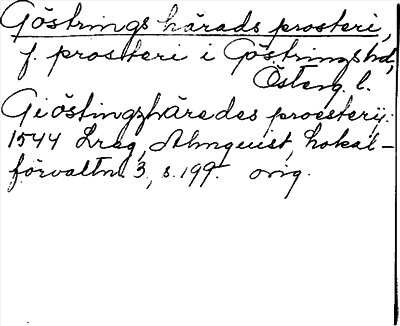 Göstrings härads prosteri,
f. prosteri i Göstrings hd,
Österg. l.
Giöstingzhäredes proesterij
1544 Lreg, Almquist, Lokal-
förvaltn. 3, s. 199. orig.